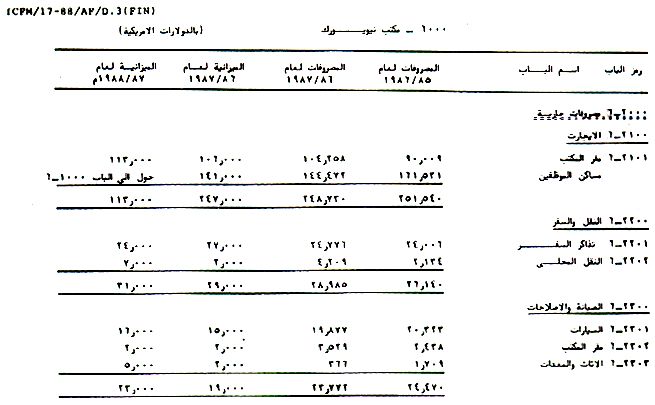 ICFM/17-88/AF/D.3(FIN)
٦٠٠٠ ـ مكتب نيويـــــورك (بالدولارات الامريكية)
رمز الباب اسم البـاب المصروفات لعام المصروفات لعام الميزانية لعـام الميزانيـة لعـام
١٩٨٦/٨٥ ١٩٨٧/٨٦ ١٩٨٧/٨٦ ١٩٨٨/٨٧م
٦ـ٢٠٠٠ مصروفات جاريـة
٦ـ٢١٠٠ الايجارت
٦ـ٢١٠١ مقر المكتب ٩٠,٠٠٩ ١٠٤,٢٥٨ ١٠٦,٠٠٠ ١١٣,٠٠٠
مساكن الموظفين ١٦١,٥٣١ ١٤٤,٤٧٢ ١٤١,٠٠٠ حول الى الباب ١٠٠٠ـ٦
٢٥١,٥٤٠ ٢٤٨,٧٣٠ ٢٤٧,٠٠٠ ١١٣,٠٠٠
٦ـ٢٢٠٠ النقل والسفر
٦ـ٢٢٠١ تذاكر السفـــــر ٢٤,٠٠٦ ٢٤,٧٧٦ ٢٧,٠٠٠ ٢٤,٠٠٠
٦ـ٢٢٠٢ النقل المحلـــى ٢,١٣٤ ٤,٢٠٩ ٢,٠٠٠ ٧,٠٠٠
٢٦,١٤٠ ٢٨,٩٨٥ ٢٩,٠٠٠ ٣١,٠٠٠
٦ـ٢٣٠٠ الصيانة والاصلاحات
٦ـ٢٣٠١ السيارات ٢٠,٣٢٣ ١٩,٨٧٧ ١٥,٠٠٠ ١٦,٠٠٠
٦ـ٢٣٠٢ مقر المكتب ٢,٤٣٨ ٣,٥٢٩ ٢,٠٠٠ ٢,٠٠٠
٦ـ٢٣٠٣ الاثاث والمعدات ١,٧٠٩ ٣٦٦ ٢,٠٠٠ ٥,٠٠٠
٢٤,٤٧٠ ٢٣,٧٧٢ ١٩,٠٠٠ ٢٣,٠٠٠